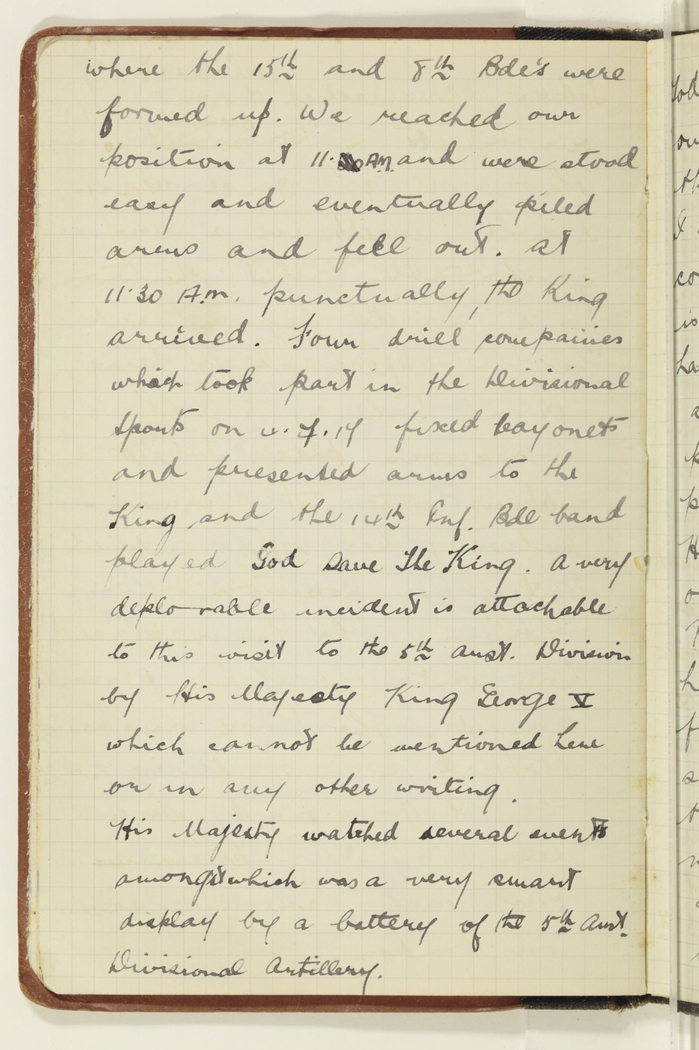 where the 15th and 8th Bde's were
formed up. We reached our
position at 11. A.M. and were stood
easy and eventually piled
arms and fell out. at
11.30 A.m. punctually, the King
arrived. Four drill companies
which took part in the Divisional
Sports on fixed bayonets
and presented arms to the
King and the 14th Inf. Bde band
played God save The King. A very
deplo-rable incident is attachable
to this visit to the 5th Aust. Division
by His Majesty King George V
which cannot be mentioned here
or in any other writing.
His Majesty watched several events
amongst which was a very smart
display by a battery of the 5th Aust.
Divisional Artillery.